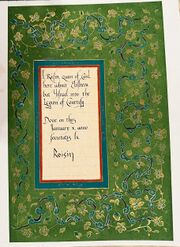 I Roisin, queen of Eald
here admit Elashava
bat Yehud into the
Legion of Courtesy
Done on this
January x anno
societatis li
Roisin